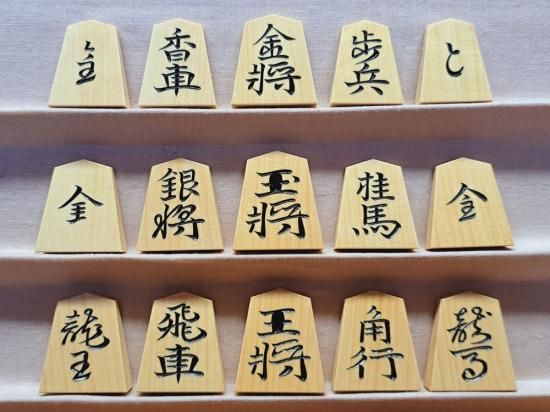 金 香車 金将 歩兵 と
金 銀将 玉将 桂馬 金
龍王 飛車 王将 角行 龍馬